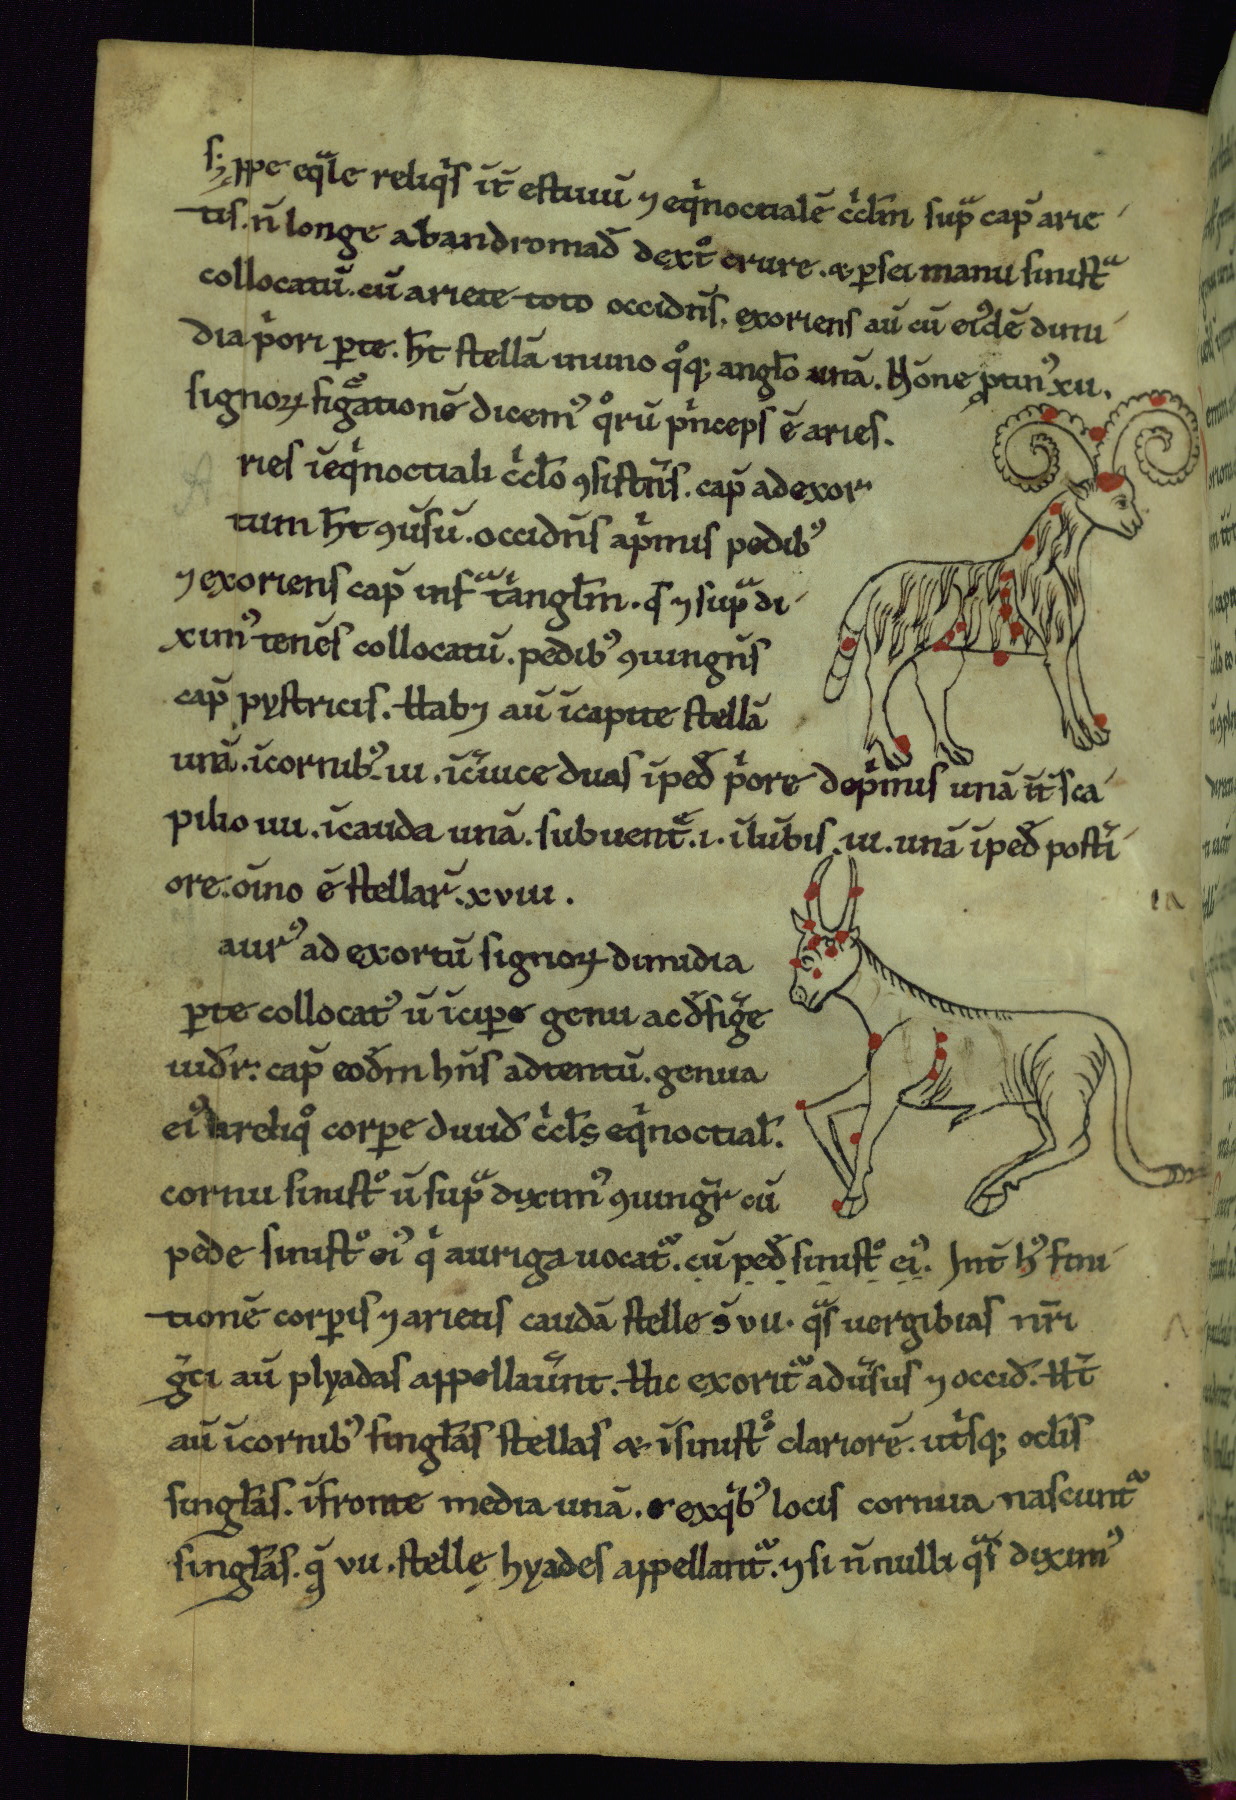 s; ꝓpe eq̃le reliq̇s it̄ estiuū ⁊ eq̇noctialē c̓cl̄m sup̃ cap̃ arie
tis. n̄ longe abandromad̄ dext̊ crure. & ꝑsei manu sinist̃
collocatū. cū ariete toto occidn̄s. exoriens aū cū eiꝰdē dimi
dia p̓ori ꝑte. h̄t stellā inuno q̊q; anglo unā. H̄ōne ꝓtinꝰ xii.
signoꝝ fig̃ationē dicemꝰ q̊rū p̓nceps ē aries.
ries īeq̇noctiali c̓cl̄o ꝯsistn̄s. cap̃ adexor
tum h̄t ꝯūsū. occidn̄s ap̓mis pedibꝰ
⁊ exoriens cap̃ inf̃ t̓angl̄m. q̄ ⁊ sup̃ di
ximꝰ tenēs collocatū. pedibꝰ ꝯiungn̄s
cap̃ pystricis. Hab⁊ aū īcapite stellā
unā. īcornibꝰ. iii. īc̃uice duas īped̄ p̓ore dep̓mis unā it̄ sca
pilio iiii. īcauda unā. subuent̄. i. īlūbis. iii. unā īped̄ post̓i
ore. oīno ē stellar̄. xviii.
aurꝰ ad exortū signoꝝ dimidia
ꝑte collocatꝰ ū īcipe genu acd̄fig̃e
uid̄r: cap̃ eod̄m hn̄s adtentū. genua
eiꝰ areliq̊ corpe diuid̄ c̓cl̄s eq̇noctial̄.
cornu sinist̊ ū sup̃ diximꝰ ꝯiungr̄ cū
pede sinist̊ eiꝰ q̇ auriga uocat̃. cū ped̄ sinist̊ eiꝰ. Int̄ hꝰ fini
tionē corꝑis ⁊ arietis caudā stelle s̄ vii. q̃s uergibias nr̄i
g̃ci aū plyadas appellaūnt. Hic exorit̃ adūsus ⁊ occid̄. H̄t
aū īcornibꝰ singl̄as stellas & īsinist̊ clariorē. ut̓sq; ocl̄is
singl̄as. īfronte media unā. & exq̇bꝰ locis cornua nascunt̃
singl̄as. q̄ vii. stellę hyades appellant̃. ⁊ si n̄nulli q̃s diximꝰ